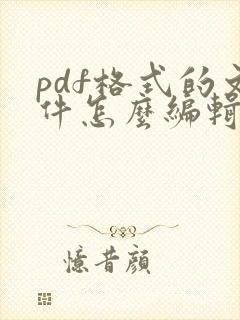 pdf格式的文
件怎麼編輯
憶昔顔